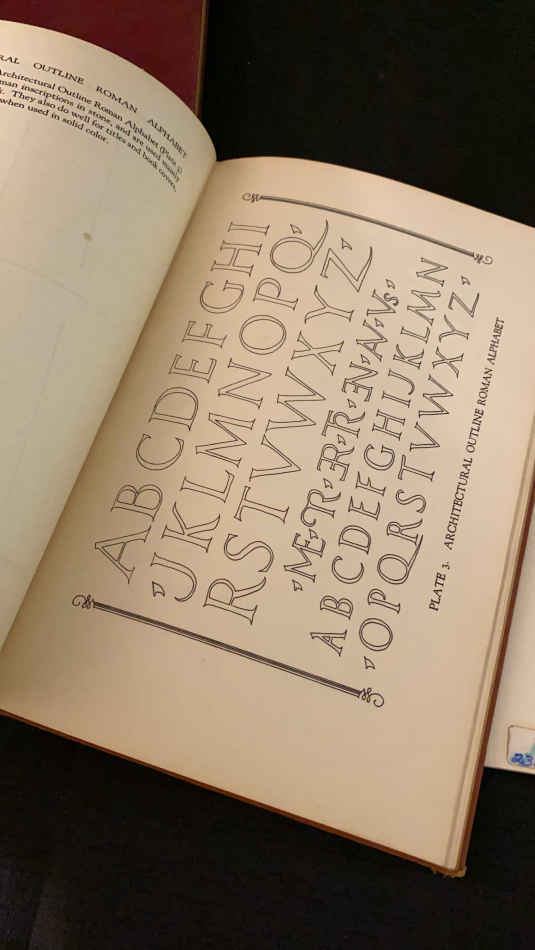 RAL OUTLINE ROMAN ALPHABET
Architectural Outline Roman Alphabet (Plate 3)
man inscriptions in stone, and are used mainly
They also do well for titles and book covers,
when used in solid color.
ABCDEFGHI
JKLMNOPQ
RSTVWXYZ
ABCDEFGHIJKLMN
OPQRSTVWXYZ
PLATE 3. ARCHITECTURAL OUTLINE ROMAN ALPHABET
23